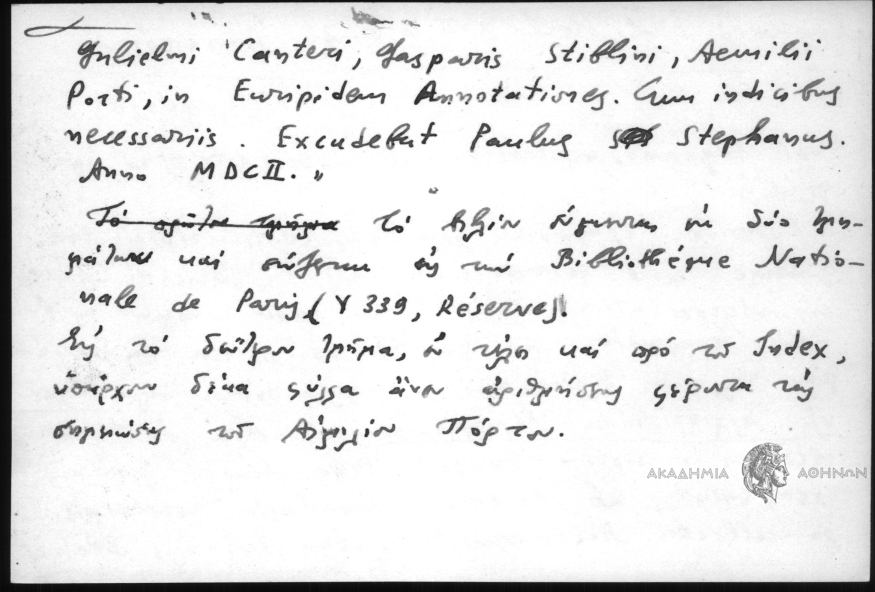 Gulielmi Canteri, Gasparis Stiblini, Aemilii
Porti, in Euripidem Annotationes. Cum indicibus
necessariis. Excudebat Paulus Stephanus.
Anno MDCII."
τό βιβλίον σύγκειται ἐκ δύο τμη-
μάτων καί σώζεται εἰς τήν Bibliothéque Natio-
nale de Paris (Y 339, Réserve).
Εἰς τό δεύτερον τμῆμα, ἐν τέλει καί πρό τοῦ Index,
ὑπάρχουν δέκα φύλλα ἄνευ ἀριθμήσεως φέροντα τάς
σημειώσεις τοῦ Αἰμιλίου Πόρτου.
ΑΚΑΔΗΜΙΑ ΑΘΗΝΩΝ